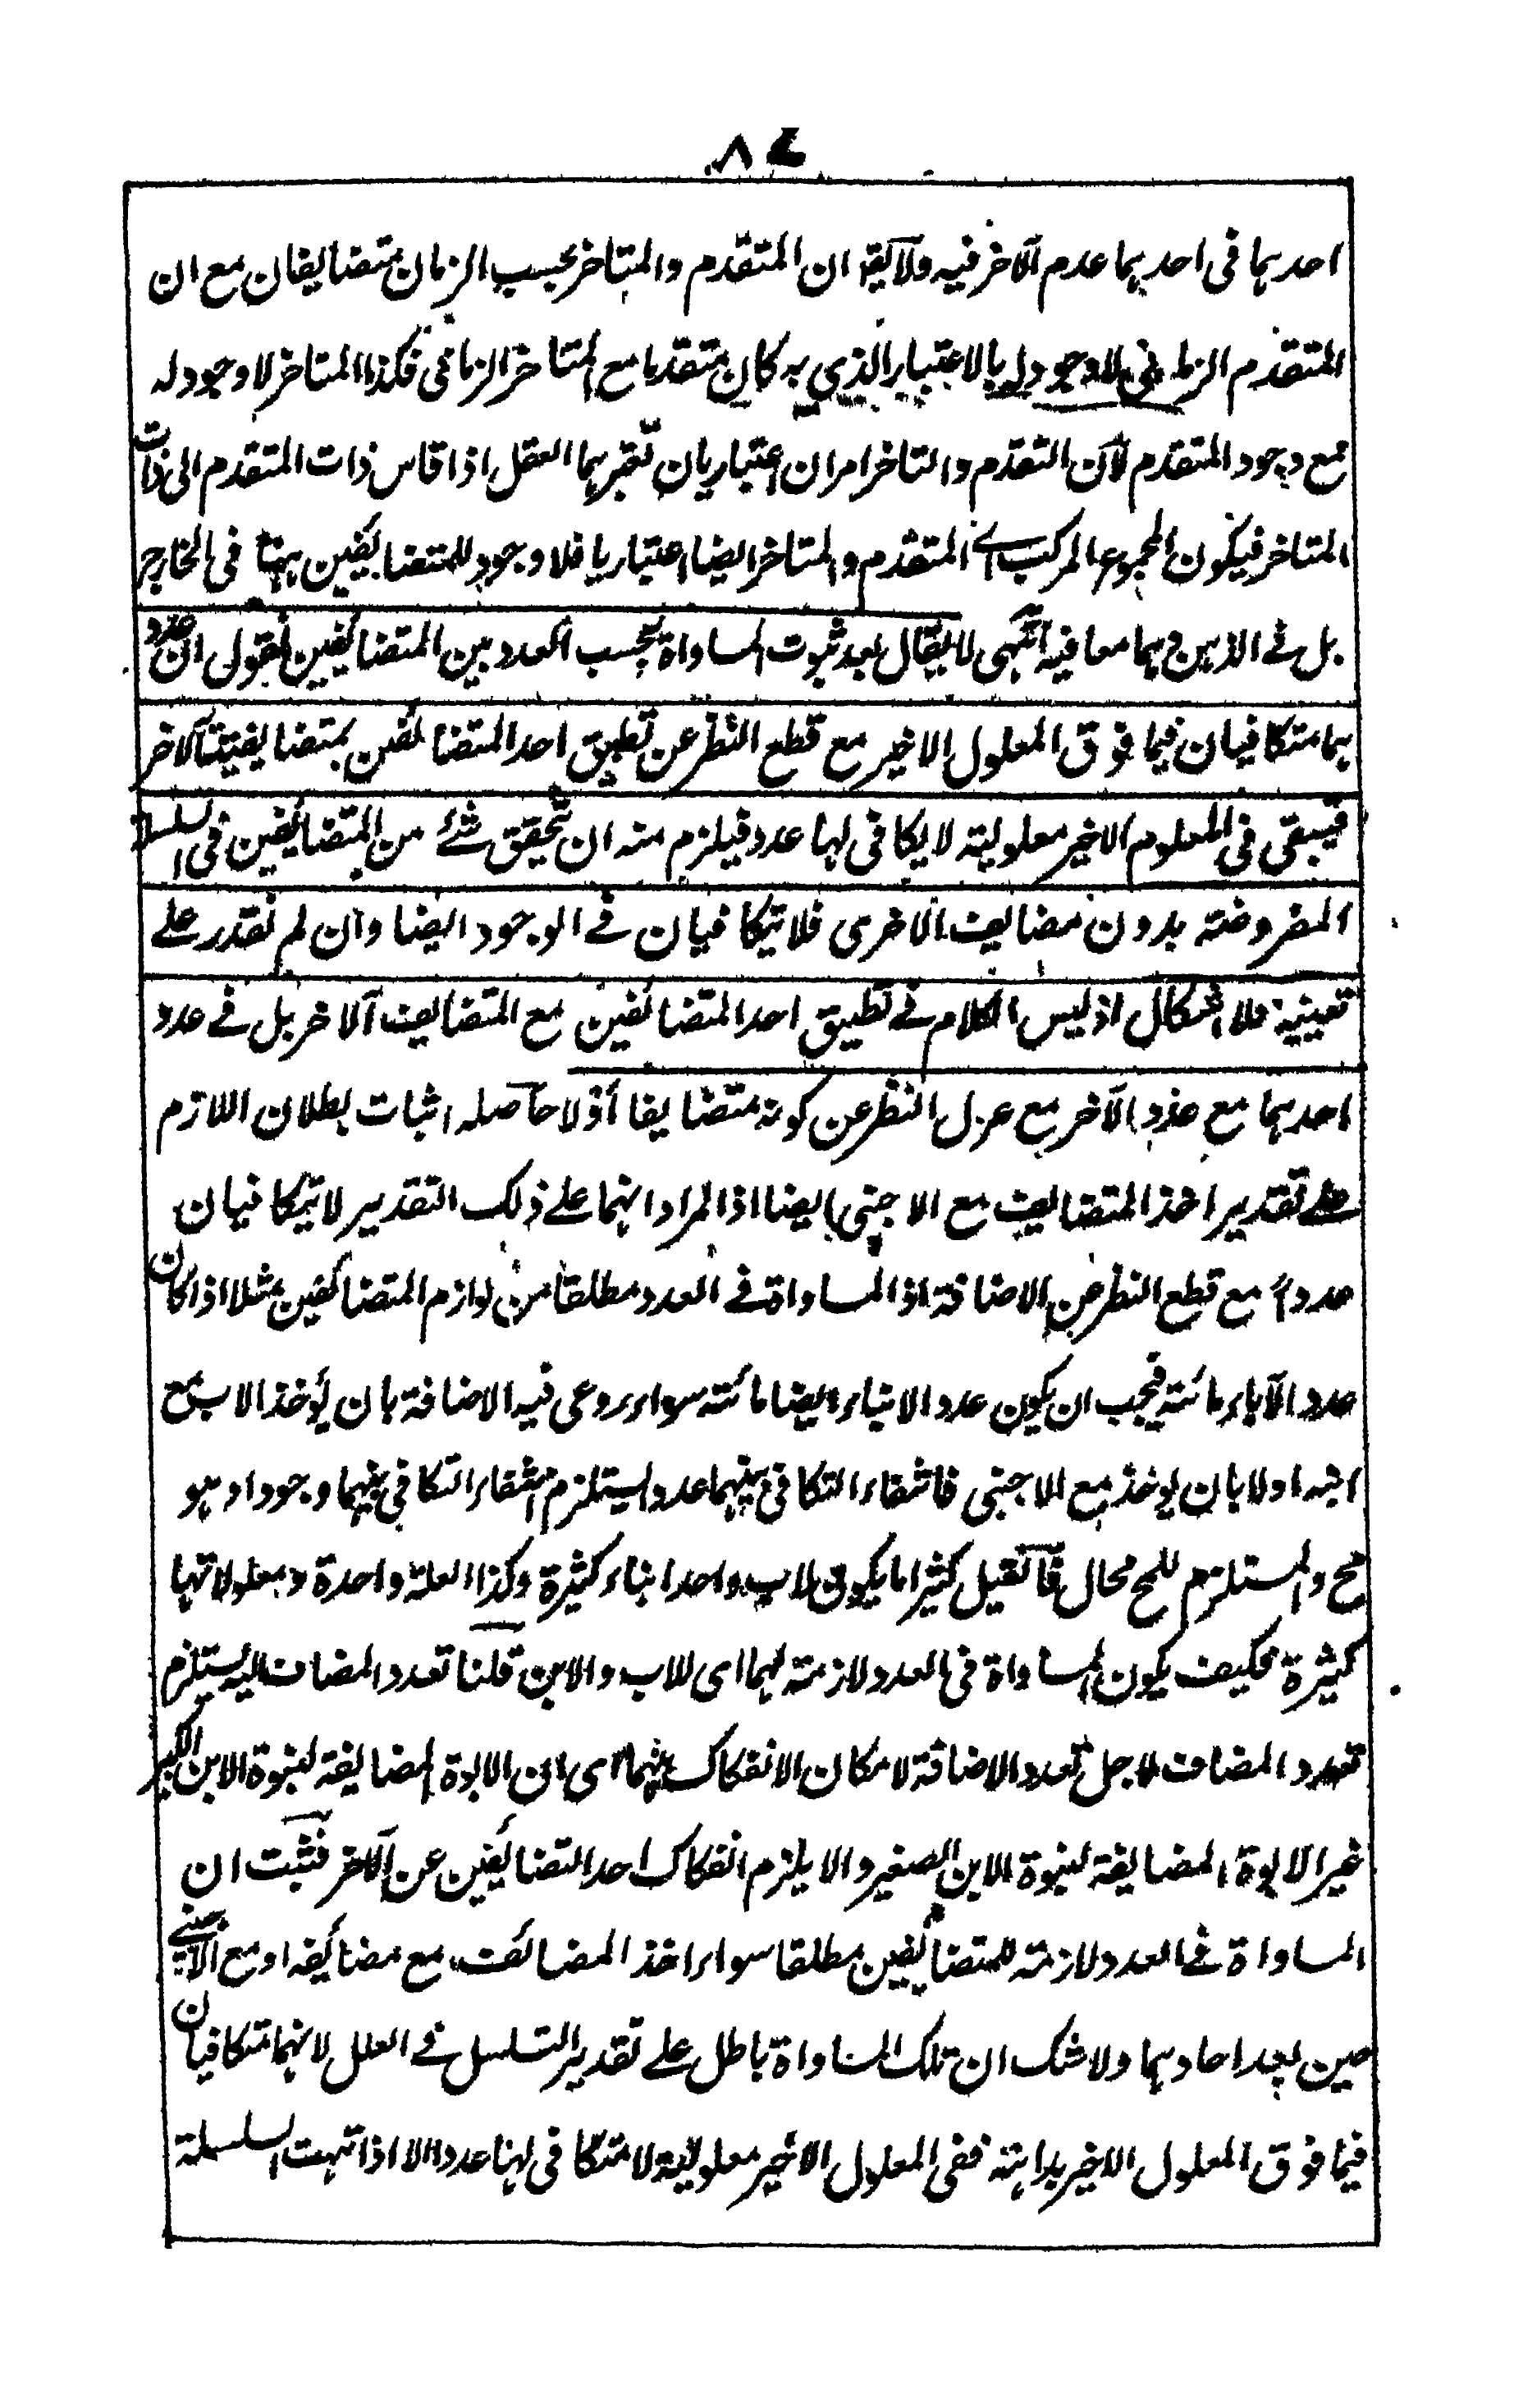 ٨٤
احدهما فى احدهما عدم الآخر فيه ولا يقۃ ان المتقدم والمتاخر بحسب الزمان متضايفان مع ان
المتقدم الزمانى لا وجود له بالاعتبار الذي به كان متقدما مع المتاخر الزمانى فكذا المتاخر لا وجود له
مع وجود المتقدم لان التقدم والتاخر امران اعتباريان يعتبرهما العقل اذا قاس ذات المتقدم الى ذات
المتاخر فيكون المجموع المركب اي المتقدم والمتاخر ايضا اعتباريا فلا وجود للمتضايفين ههنا فى الخارج
بل فے الذهن وهما معا فيه انتهى لا يقال بعد ثبوت المساواة بحسب العدد بين المتضايفين نقول ان عدد
هما متكافيان فيما فوق المعلول الاخير مع قطع النظر عن تطبيق احد المتضائفين بمتضايفيۃ الآخر
فيبقى فى المعلوم الاخير معلولية لا يكافى لها عدد فيلزم منه ان يتحقق شئے من المتضائفين فى السلسلة
المفروضة بدون مضايف الاخرى فلا يتكافيان فے الوجود ايضا وان لم نقدر علے
تعيينه فلا اشكال اذ ليس الكلام فے تطبيق احد المتضائفين مع المتضايف الآخر بل فے عدد
احدهما مع عدد الآخر مع عزل النظر عن كونه متضايفا أو لا حاصله اثبات بطلان اللازم
علے تقدير اخذ المتضايف مع الاجنبى ايضا اذ المراد انهما علے ذلك التقدير لا يتكافيان
عدداً مع قطع النظر عن الاضافة اذ المساواة فے العدد مطلقا من لوازم المتضائفين مثلا اذا كان
عدد الآباء مائة فيجب ان يكون عدد الابناء ايضا مائة سواء روعى فيه الاضافة بان يؤخذ الاب مع
ابنه اولا بان يوخذ مع الاجنبى فانتفاء التكافى بينهما عددا يستلزم انتفاء التكافى بينهما وجودا وهو
مح والمستلزم للمح محال فآن قيل كثيرا ما يكون لاب واحد ابناء كثيرة وكذا العلة واحدة ومعلولاتها
كثيرة فكيف يكون المساواة فى العدد لازمة لهما اى للاب والابن قلنا تعدد المضاف اليه يستلزم
تعدد المضاف لاجل تعدد الاضافة لامكان الانفكاك بينهما اى ان الابوة المضايفة لبنوة الابن الكبير
غير الابوة المضايفة لبنوة الابن الصغير والا يلزم انفكاك احد المتضائفين عن الآخر فثبت ان
المساواة فے العدد لازمة للمتضائفين مطلقا سواء اخذ المضائف مع مضائفه او مع الاجنبے
حين يعد احادهما ولا شك ان تلك المساواة باطل علے تقدير التسلسل فے العلل لانهما متكافيان
فيما فوق المعلول الاخير بداهة ففى المعلول الاخير معلولية لا متكافى لها عددا الا اذا انتهت السلسلة